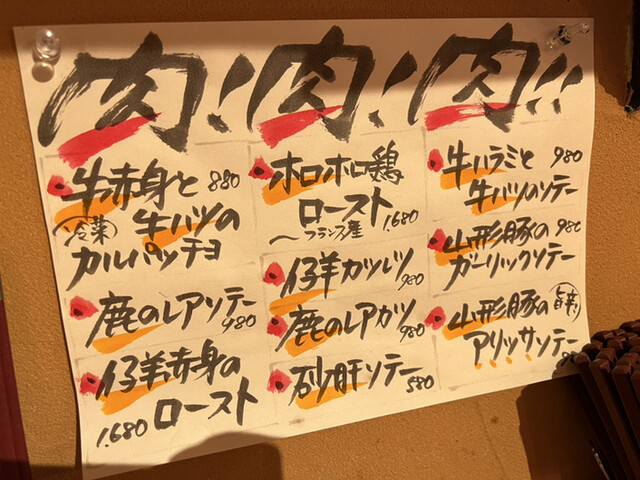 肉!肉!肉!!
牛赤身と 880
冷菜 牛ハツの
カルパッチョ
鹿のレアソテー
980
仔羊赤身の
1.680 ロースト
ホロホロ鶏
ロースト
〜フランス産 1.680
仔羊カツレツ
980
鹿のレアカツ 980
砂肝ソテー
580
牛ハラミと 980
牛ハツのソテー
山形豚の 980
ガーリックソテー
山形豚の 旨辛
アリッサソテー